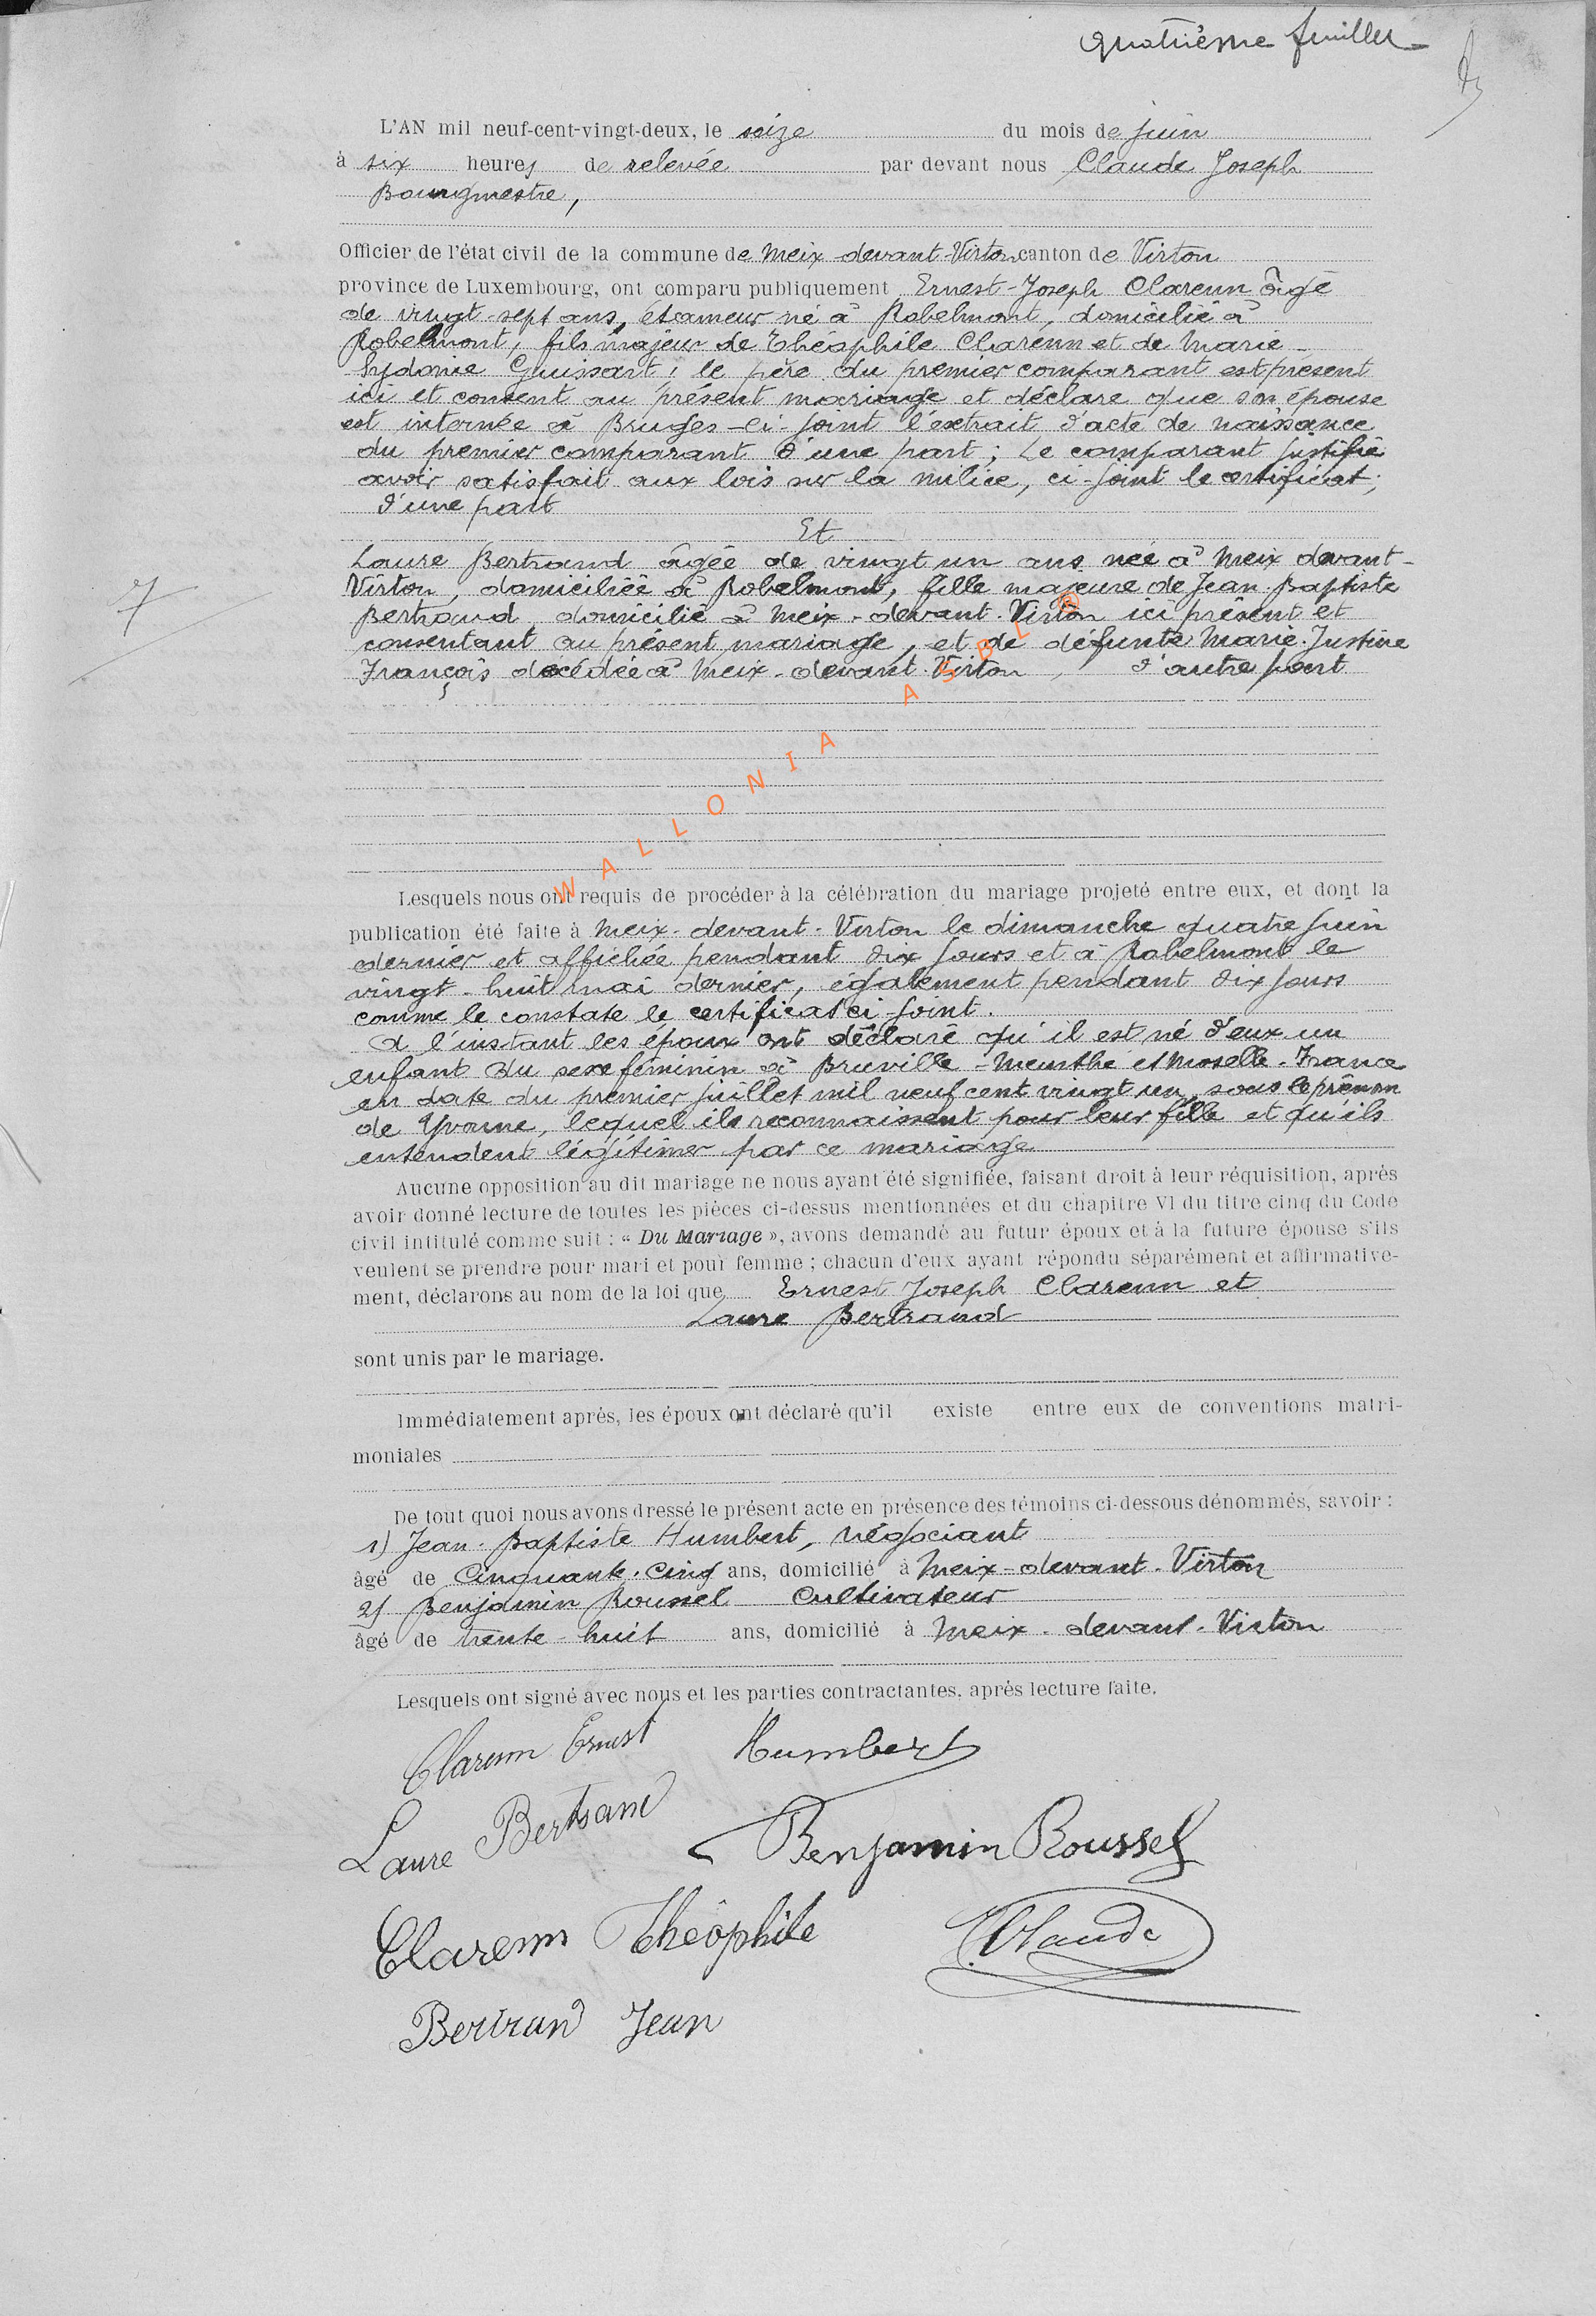 quatrième feuillet
L'AN mil neuf-cent-vingt-deux, le seize du mois de juin
à six heures de relevée par devant nous Claude Joseph
Bourgmestre,
Officier de l'état civil de la commune de Meix-devant-Virton canton de Virton
province de Luxembourg, ont comparu publiquement Ernest-Joseph Clarenn âgé
de vingt-sept ans, étameur né à Robelmont, domicilié à
Robelmont, fils majeur de Théophile Clarenn et de Marie-
Sydonie Guissart; le père du premier comparant est présent
ici et consent au présent mariage et déclare que son épouse
est internée à Bruges - ci-joint l'extrait d'acte de naissance
du premier comparant d'une part; Le comparant justifie
avoir satisfait aux lois sur la milice, ci-joint le certificat;
d'une part
Et
7
Laure Bertrand âgée de vingt un ans née à Meix devant-
Virton, domiciliée à Robelmont, fille majeure de Jean-Baptiste
Bertrand domicilié à Meix-devant-Virton ici présent et
consentant au présent mariage, et de défunte Marie-Justine
François décédée à Meix-devant-Virton, d'autre part
WALLONIA ASBL ®
Lesquels nous ont requis de procéder à la célébration du mariage projeté entre eux, et dont la
publication été faite à Meix-devant-Virton le dimanche quatre juin
dernier et affichée pendant dix jours et à Robelmont le
vingt-huit mai dernier, également pendant dix jours
comme le constate le certificat ci-joint.
A l'instant les époux ont déclaré qu'il est né d'eux un
enfant du sexe féminin à Bruville - Meurthe et Moselle - France
en date du premier juillet mil neuf cent vingt un, sous le prénom
de Yvonne, lequel ils reconnaissent pour leur fille et qu'ils
entendent légitimer par ce mariage
Aucune opposition au dit mariage ne nous ayant été signifiée, faisant droit à leur réquisition, après
avoir donné lecture de toutes les pièces ci-dessus mentionnées et du chapitre VI du titre cinq du Code
civil intitulé comme suit : « Du Mariage », avons demandé au futur époux et à la future épouse s'ils
veulent se prendre pour mari et pour femme ; chacun d'eux ayant répondu séparément et affirmative-
ment, déclarons au nom de la loi que Ernest Joseph Clarenn et
Laure Bertrand
sont unis par le mariage.
Immédiatement après, les époux ont déclaré qu'il existe entre eux de conventions matri-
moniales
De tout quoi nous avons dressé le présent acte en présence des témoins ci-dessous dénommés, savoir :
1) Jean-Baptiste Humbert, négociant
âgé de cinquante-cinq ans, domicilié à Meix-devant-Virton
2) Benjamin Roussel Cultivateur
âgé de trente-huit ans, domicilié à Meix-devant-Virton
Lesquels ont signé avec nous et les parties contractantes, après lecture faite.
Clarenn Ernest Humbert
Laure Bertrand
Benjamin Roussel
Clarenn Théophile J. Claude
Bertrand Jean